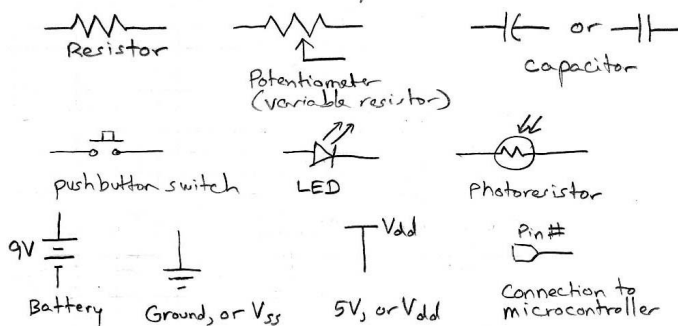 Resistor
Potentiometer
(variable resistor)
or
Capacitor
pushbutton switch
LED
Photoresistor
9V
Battery
Ground, or Vss
Vdd
5V, or Vdd
Pin #
Connection to
microcontroller